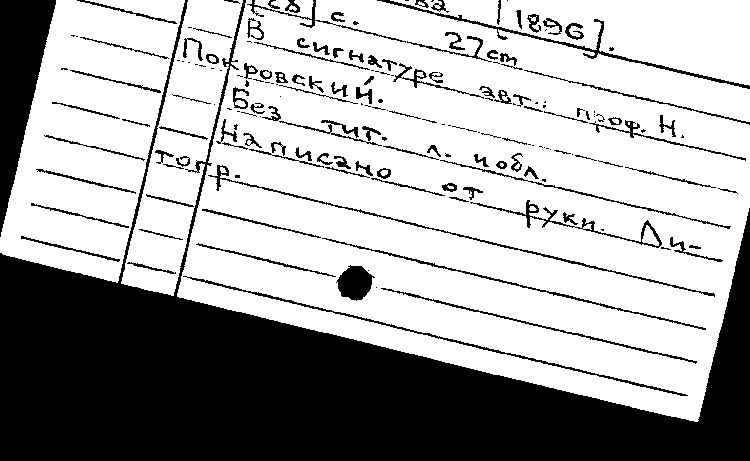 [1896].
с. 27cm
В сигнатуре авт.: проф. Н.
Покровский.
Без тит. л. и обл.
Написано от руки. Ли-
тогр.